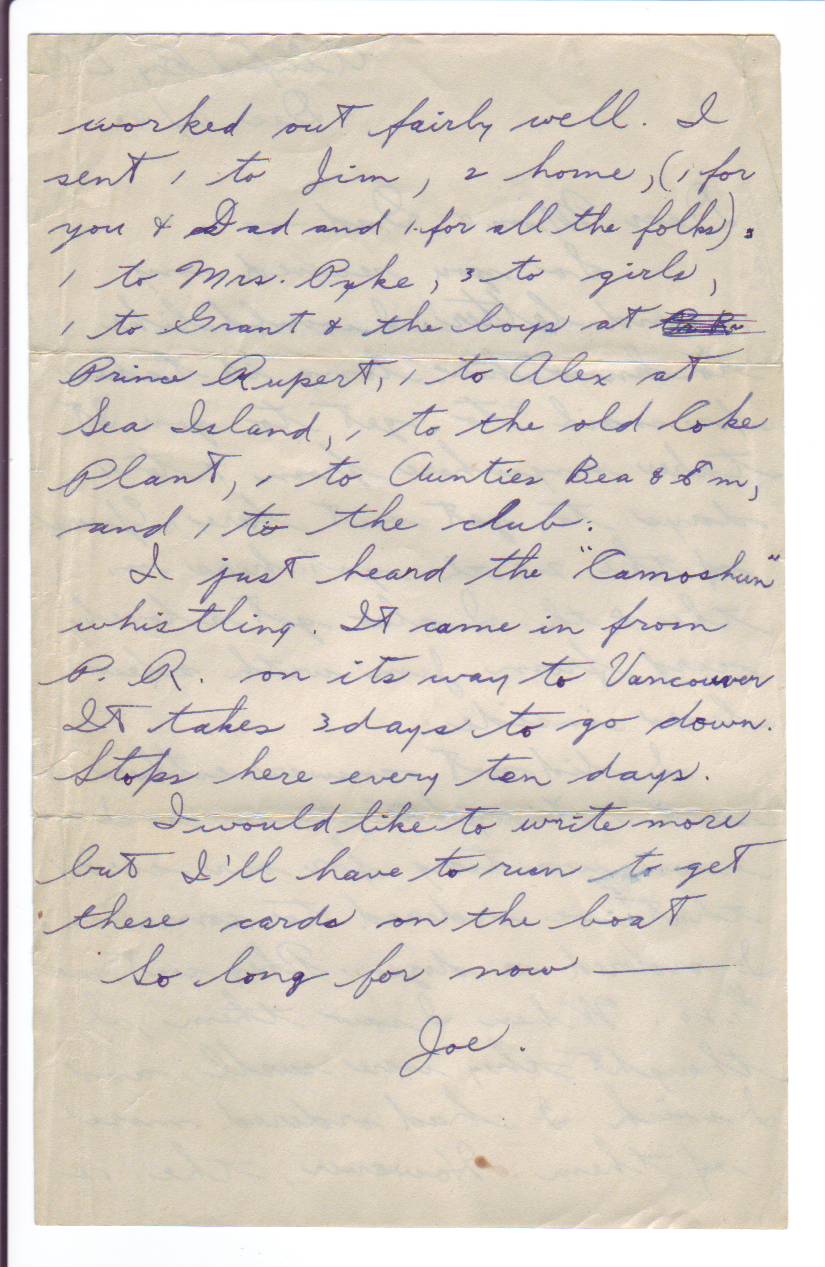 worked out fairly well. I
sent 1 to Jim, 2 home, (1 for
you & Dad and 1 for all the folks).
1 to Mrs. Pyke, 3 to girls,
1 to Grant & the boys at
Prince Rupert, 1 to Alex at
Sea Island, 1 to the old Coke
Plant, 1 to Aunties Bea & Em,
and 1 to the club.
I just heard the "Camoshun"
whistling. It came in from
P. R. on its way to Vancouver
It takes 3 days to go down.
Stops here every ten days.
I would like to write more
but I'll have to run to get
these cards on the boat
So long for now —
Joe.